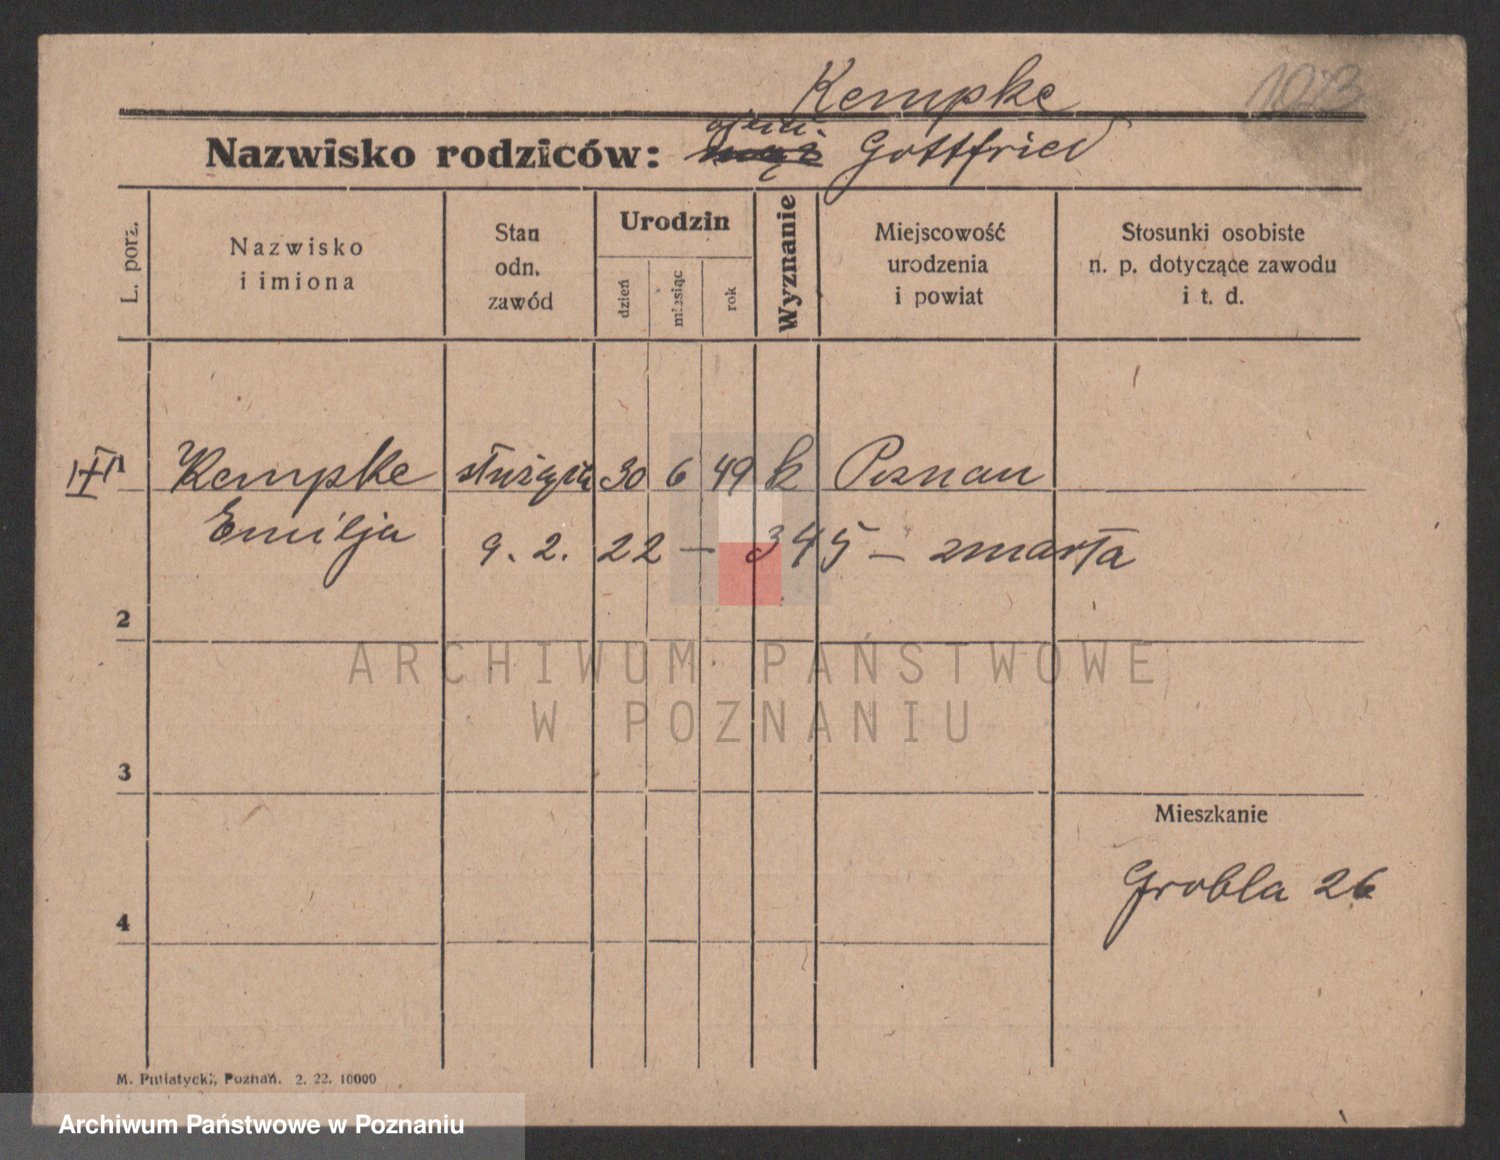 Kempke 1023
Nazwisko rodziców: ojciec Gottfried
L. porz.
Nazwisko
i imiona
Stan
odn.
zawód
Urodzin
dzień
miesiąc
rok
Wyznanie
Miejscowość
urodzenia
i powiat
Stosunki osobiste
n. p. dotyczące zawodu
i t. d.
Kempke służąca 30 6 49 k Poznań
Emilja 9. 2. 22 — 345 — zmarła
2
ARCHIWUM PAŃSTWOWE
W POZNANIU
3
Mieszkanie
Grobla 26
4
M. Putiatycki, Poznań. 2. 22. 10000
Archiwum Państwowe w Poznaniu